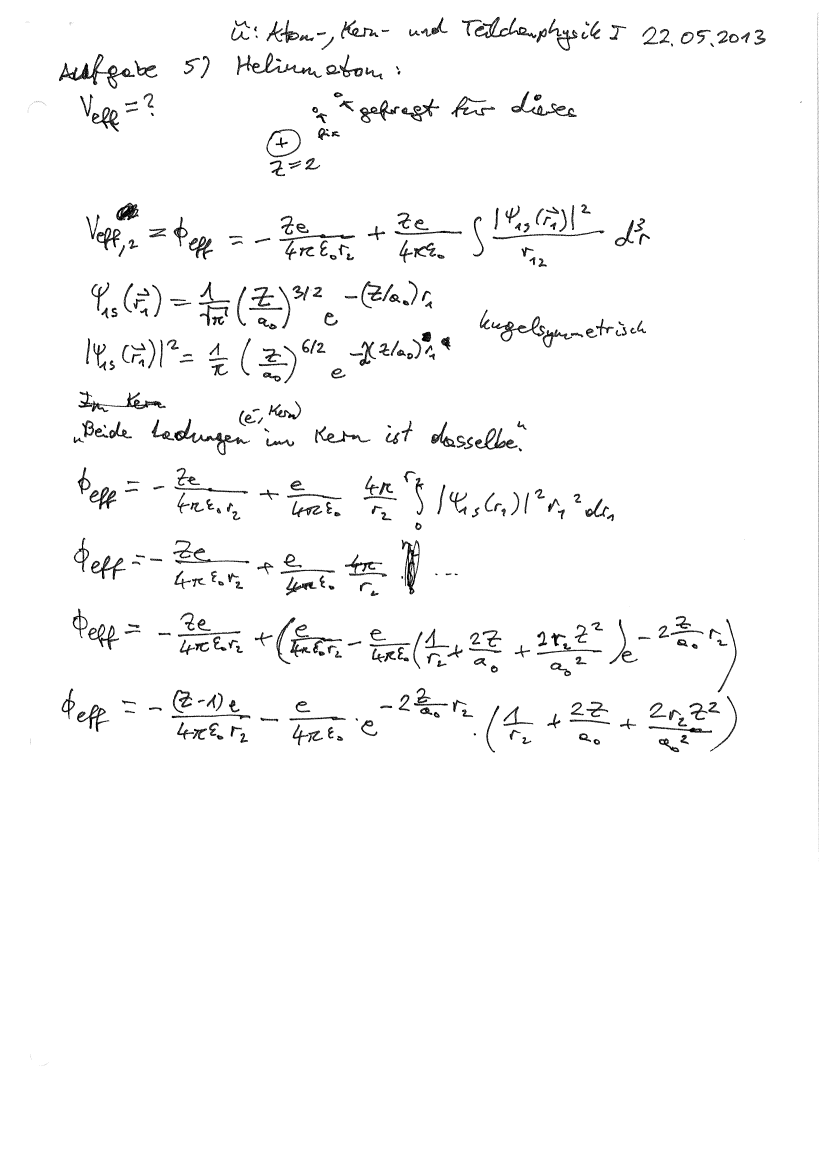 Ü: Atom-, Kern- und Teilchenphysik I 22.05.2013
Aufgabe 5) Heliumatom:
V_eff = ? gefragt für dieses
fix
+
Z=2
V_eff,2 = ϕ_eff = - Ze/(4πε₀r₂) + Ze/(4πε₀) ∫ |Ψ₁s(r⃗₁)|²/r₁₂ d³r
Ψ₁s(r⃗₁) = 1/√π (Z/a₀)^(3/2) e^(-(Z/a₀)r₁)
kugelsymmetrisch
|Ψ₁s(r⃗₁)|² = 1/π (Z/a₀)^(6/2) e^(-2(Z/a₀)r₁)
Im Kern
(e⁻, Kern)
„Beide Ladungen im Kern ist dasselbe."
ϕ_eff = - Ze/(4πε₀r₂) + e/(4πε₀) 4π/r₂ ∫₀^r₂ |Ψ₁s(r₁)|² r₁² dr₁
ϕ_eff = - Ze/(4πε₀r₂) + e/(4πε₀) 4π/r₂ ...
ϕ_eff = - Ze/(4πε₀r₂) + (e/(4πε₀r₂) - e/(4πε₀) (1/r₂ + 2Z/a₀ + 2r₂Z²/a₀²) e^(-2 Z/a₀ r₂))
ϕ_eff = - (Z-1)e/(4πε₀r₂) - e/(4πε₀) · e^(-2 Z/a₀ r₂) · (1/r₂ + 2Z/a₀ + 2r₂Z²/a₀²)